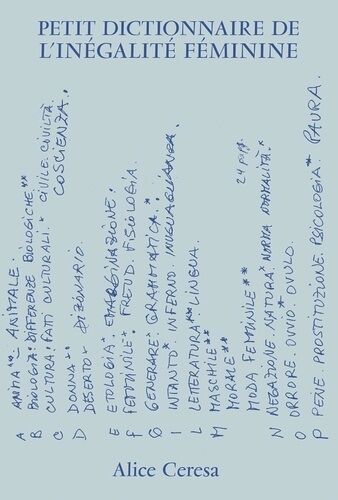 PETIT DICTIONNAIRE DE
L'INÉGALITÉ FÉMININE
A ANIMA** ANIMALE.
B BIOLOGIA* DIFFERENZE BIOLOGICHE**
C CULTURA: FATTI CULTURALI.* CIVILE. CIVILTÀ. COSCIENZA.
D DONNA**
DESERTO* DIZIONARIO.
E ETOLOGIA* EMARGINAZIONE.
F FEMMINILE* FREUD. FISIOLOGIA.
G GENERARE* GRAMMATICA.*
I INTANTO* INFERNO. INUGUAGLIANZA.
L LETTERATURA* LINGUA.
M MASCHILE**
MORALE**
MODA FEMMINILE** 24 pipp.
N NEGAZIONE. NATURA* NORMA NORMALITÀ.*
O ORRORE. OVVIO. OVULO.
P PENE. PROSTITUZIONE. PSICOLOGIA* PAURA.
Alice Ceresa